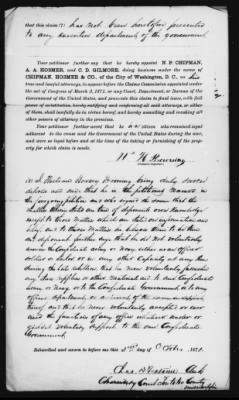 that claim has not been heretofore presented
to any executive department of the government
Your petitioner further say that he hereby appoint N. P. CHIPMAN,
A. A. HOSMER, and C. D. GILMORE, doing business under the names of
CHIPMAN, HOSMER & CO., of the City of Washington, D. C., as his
true and lawful attorneys, to appear before the Claims Commission appointed under
the act of Congress of March 3, 1871, or any Court, Department, or Bureau of the
Government of the United States, and prosecute this claim to final issue, with full
power of substitution, hereby ratifying and confirming all said attorneys, or either of
them, shall lawfully do in virtue hereof, and hereby annulling and revoking all
other powers of attorney in the premises.
Your petitioner further say that he as citizen who remained loyal
adherent to the cause and the Government of the United States during the war, and
were so loyal before and at the time of the taking or furnishing of the property
for which claim is made.
being duly sworn
deposes and says that he is the petitioner named in
the foregoing petition and who signed the same that the
matters therein stated are true of deponents own knowledge
except to those matters which are stated on information and
belief and as to those matters he believes them to be true
and deponent further says that he did not voluntarily
serve in the Confederate army or Navy either as an officer
soldier or sailor or in any other capacity at any time
during the late rebellion that he never voluntarily furnished
any stores supplies or other material aid to said Confederate
Army or Navy or to the Confederate Government or to any
officer department or adherent of the same in support
thereof and that he never voluntarily accepted or exer-
cised the functions of any office whatsoever under or
yielded voluntary support to the said Confederate
Government.
Subscribed and sworn to before me this day of October 1871.
Clerk
Chancery Court County
Mississippi